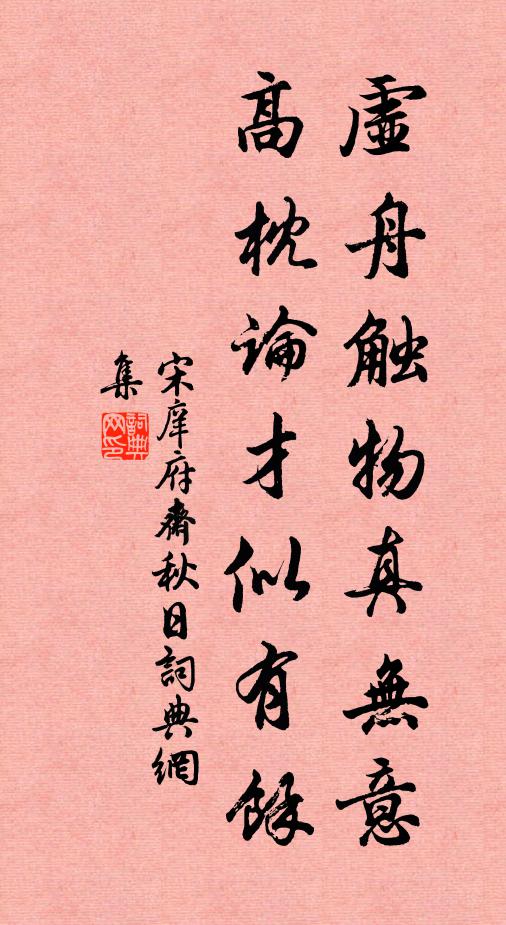 虛舟触物真無意
高枕論才似有餘
宋庠府齋秋日詞典網
集
詞典
网印